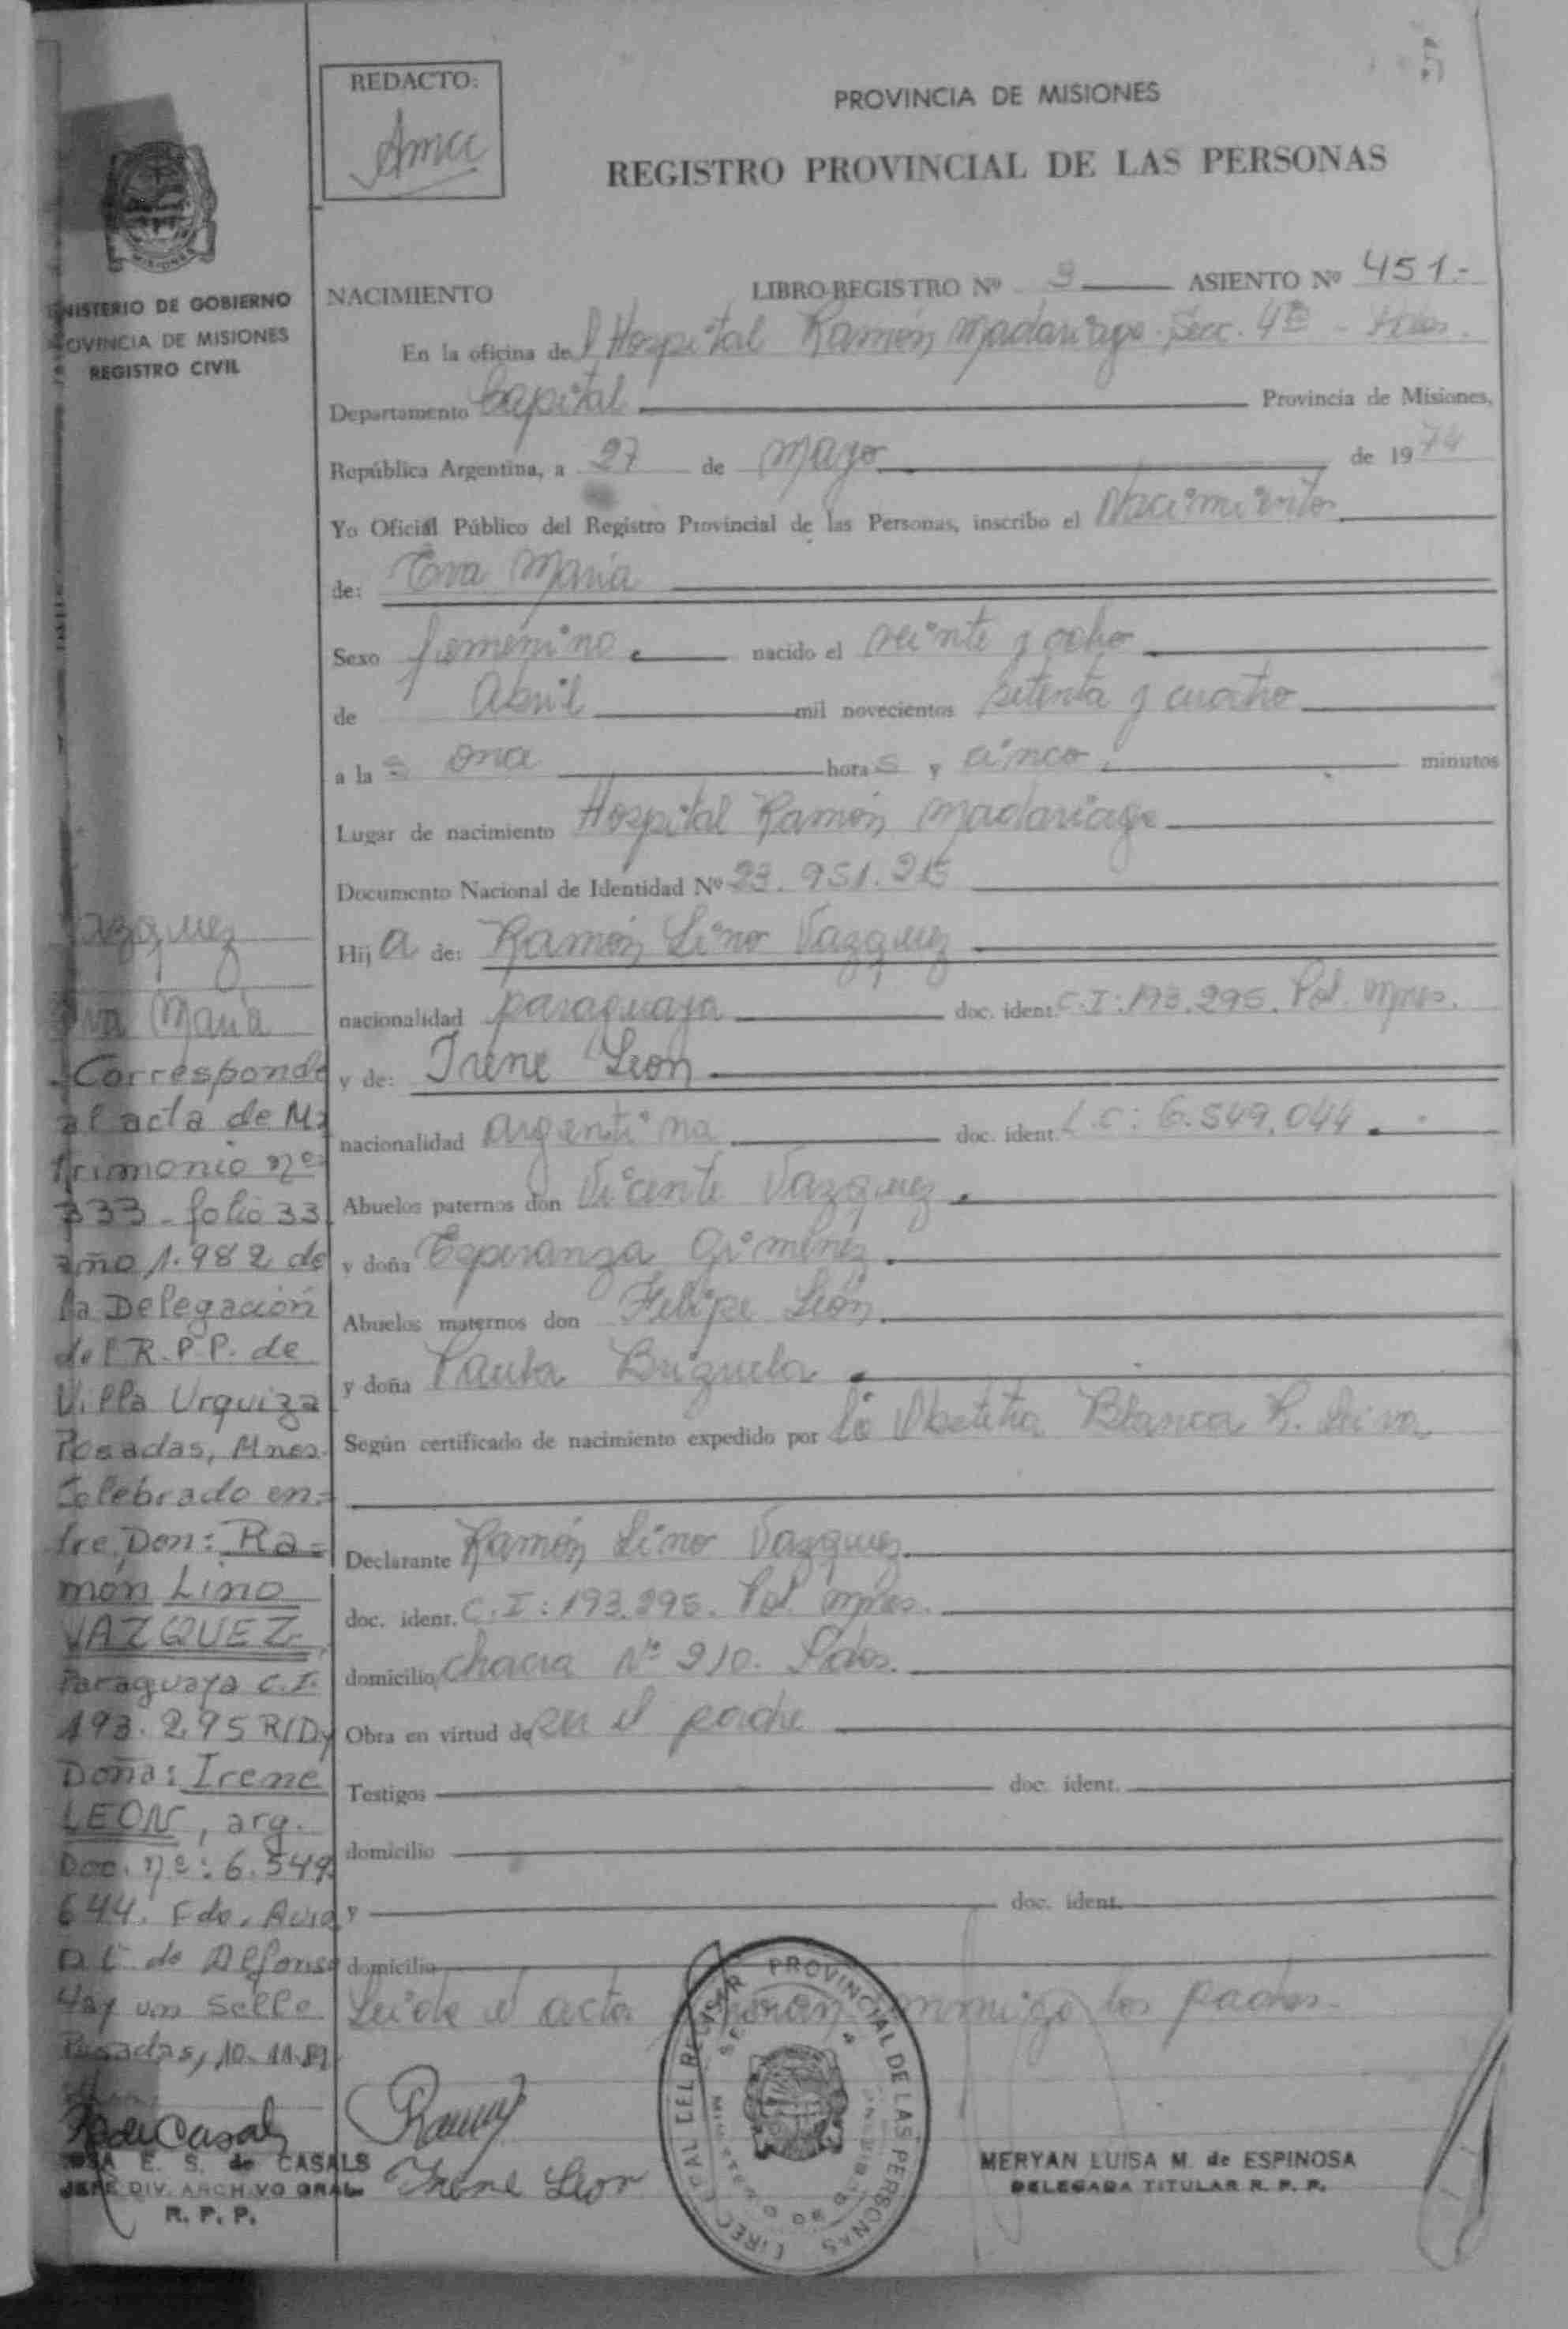 REDACTO:
PROVINCIA DE MISIONES
REGISTRO PROVINCIAL DE LAS PERSONAS
MISIONES
MINISTERIO DE GOBIERNO
PROVINCIA DE MISIONES
REGISTRO CIVIL
NACIMIENTO LIBRO-REGISTRO Nº 3 ASIENTO Nº 451.-
En la oficina del Hospital Ramón Madariaga. Secc. 4ta - Pdas.
Departamento Capital Provincia de Misiones,
República Argentina, a 27 de Mayo de 1974
Yo Oficial Público del Registro Provincial de las Personas, inscribo el Nacimiento
de: Eva Maria
Sexo femenino. nacido el veinte y ocho
de Abril mil novecientos setenta y cuatro
a la s once horas y cinco minutos
Lugar de nacimiento Hospital Ramón Madariaga
Documento Nacional de Identidad Nº 23.951.215
Hij a de: Ramón Lino Vazquez
nacionalidad paraguaya doc. ident. C.I: 193.295. Pol. Mnes.
y de: Irene Leon
nacionalidad argentina doc. ident. L.C: 6.549.044.
Abuelos paternos don Vicente Vazquez.
y doña Esperanza Gimenez.
Abuelos maternos don Felipe León.
y doña Paula Brizuela
Según certificado de nacimiento expedido por la Obstetra Blanca R.
Declarante Ramón Lino Vazquez.
doc. ident. C.I: 193.295. Pol. Mnes.
domicilio chacra Nº 210. Pdas.
Obra en virtud de ser el padre
Testigos doc. ident.
domicilio
y doc. ident.
domicilio
Leida el acta firman conmigo los padres.
Vazquez
Eva Maria
Corresponde
al acta de Ma
trimonio nº
333 - folio 33
año 1.982 de
la Delegación
del R.P.P. de
Villa Urquiza
Posadas, Mnes.
Celebrado en-
tre Don: Ra=
món Lino
VAZQUEZ,
Paraguaya C.I.
193.295 R/D y
Doña: Irene
LEON, arg.
Doc. nº: 6.549
644. Fdo.
de Alfonso
Hay un Sello
Posadas, 10-11-
E. S. de CASALS
JEFE DIV. ARCHIVO GRAL
R. P. P.
Irene Leon
PROVINCIAL DE LAS PERSONAS
MERYAN LUISA M. de ESPINOSA
DELEGADA TITULAR R. P. P.